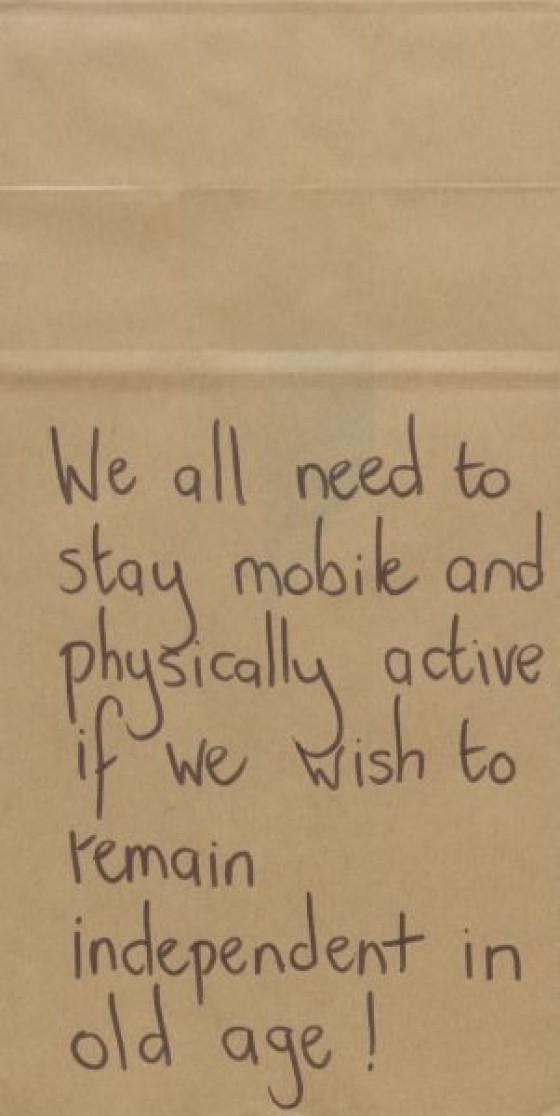 We all need to
stay mobile and
physically active
if we wish to
remain
independent in
old age!